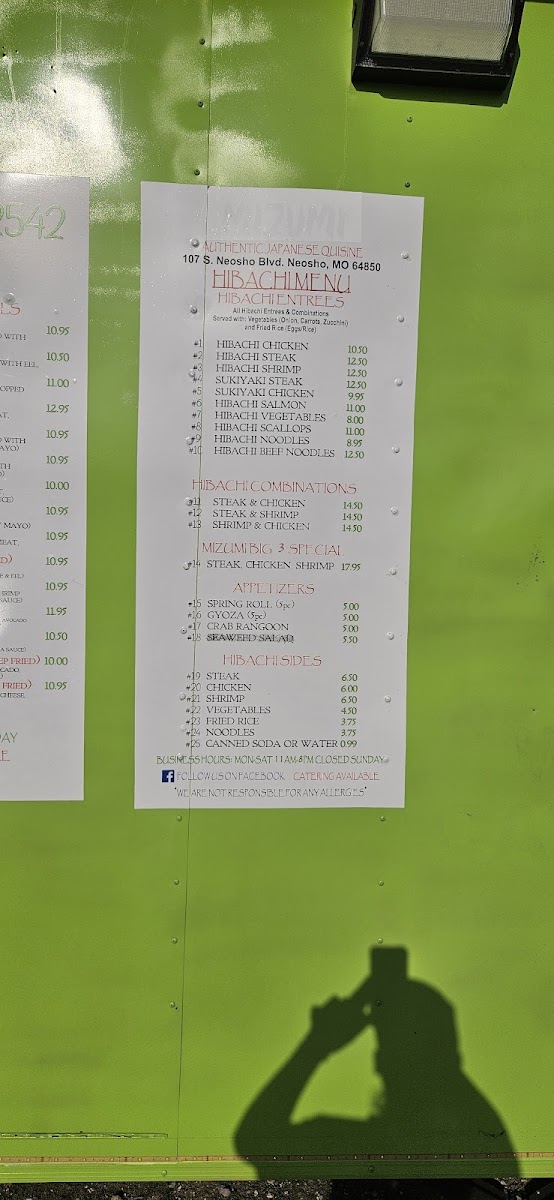 2542
10.95
D WITH
10.50
WITH EEL,
11.00
OPPED
12.95
AT,
10.95
D WITH
AYO)
10.95
TH
10.00
10.95
T MAYO)
10.95
EAT,
10.95
E & EEL)
10.95
HRIMP
SAUCE)
11.95
AVOCADO
10.50
A SAUCE)
EP FRIED) 10.00
CADO,
FRIED) 10.95
CHEESE,
DAY
MIZUMI
AUTHENTIC JAPANESE QUISINE
107 S. Neosho Blvd. Neosho, MO 64850
HIBACHI MENU
HIBACHI ENTREES
All Hibachi Entrees & Combinations
Served with: Vegetables (Onion, Carrots, Zucchini)
and Fried Rice (Eggs/Rice)
#1 HIBACHI CHICKEN 10.50
#2 HIBACHI STEAK 12.50
#3 HIBACHI SHRIMP 12.50
#4 SUKIYAKI STEAK 12.50
#5 SUKIYAKI CHICKEN 9.95
#6 HIBACHI SALMON 11.00
#7 HIBACHI VEGETABLES 8.00
#8 HIBACHI SCALLOPS 11.00
#9 HIBACHI NOODLES 8.95
#10 HIBACHI BEEF NOODLES 12.50
HIBACHI COMBINATIONS
#11 STEAK & CHICKEN 14.50
#12 STEAK & SHRIMP 14.50
#13 SHRIMP & CHICKEN 14.50
MIZUMI BIG 3 SPECIAL
#14 STEAK, CHICKEN SHRIMP 17.95
APPETIZERS
#15 SPRING ROLL (5pc) 5.00
#16 GYOZA (5pc) 5.00
#17 CRAB RANGOON 5.00
#18 SEAWEED SALAD 5.50
HIBACHI SIDES
#19 STEAK 6.50
#20 CHICKEN 6.00
#21 SHRIMP 6.50
#22 VEGETABLES 4.50
#23 FRIED RICE 3.75
#24 NOODLES 3.75
#25 CANNED SODA OR WATER 0.99
BUSINESS HOURS: MON-SAT 11AM-8PM CLOSED SUNDAY
f FOLLOW US ON FACEBOOK CATERING AVAILABLE
*WE ARE NOT RESPONSIBLE FOR ANY ALLERGIES*